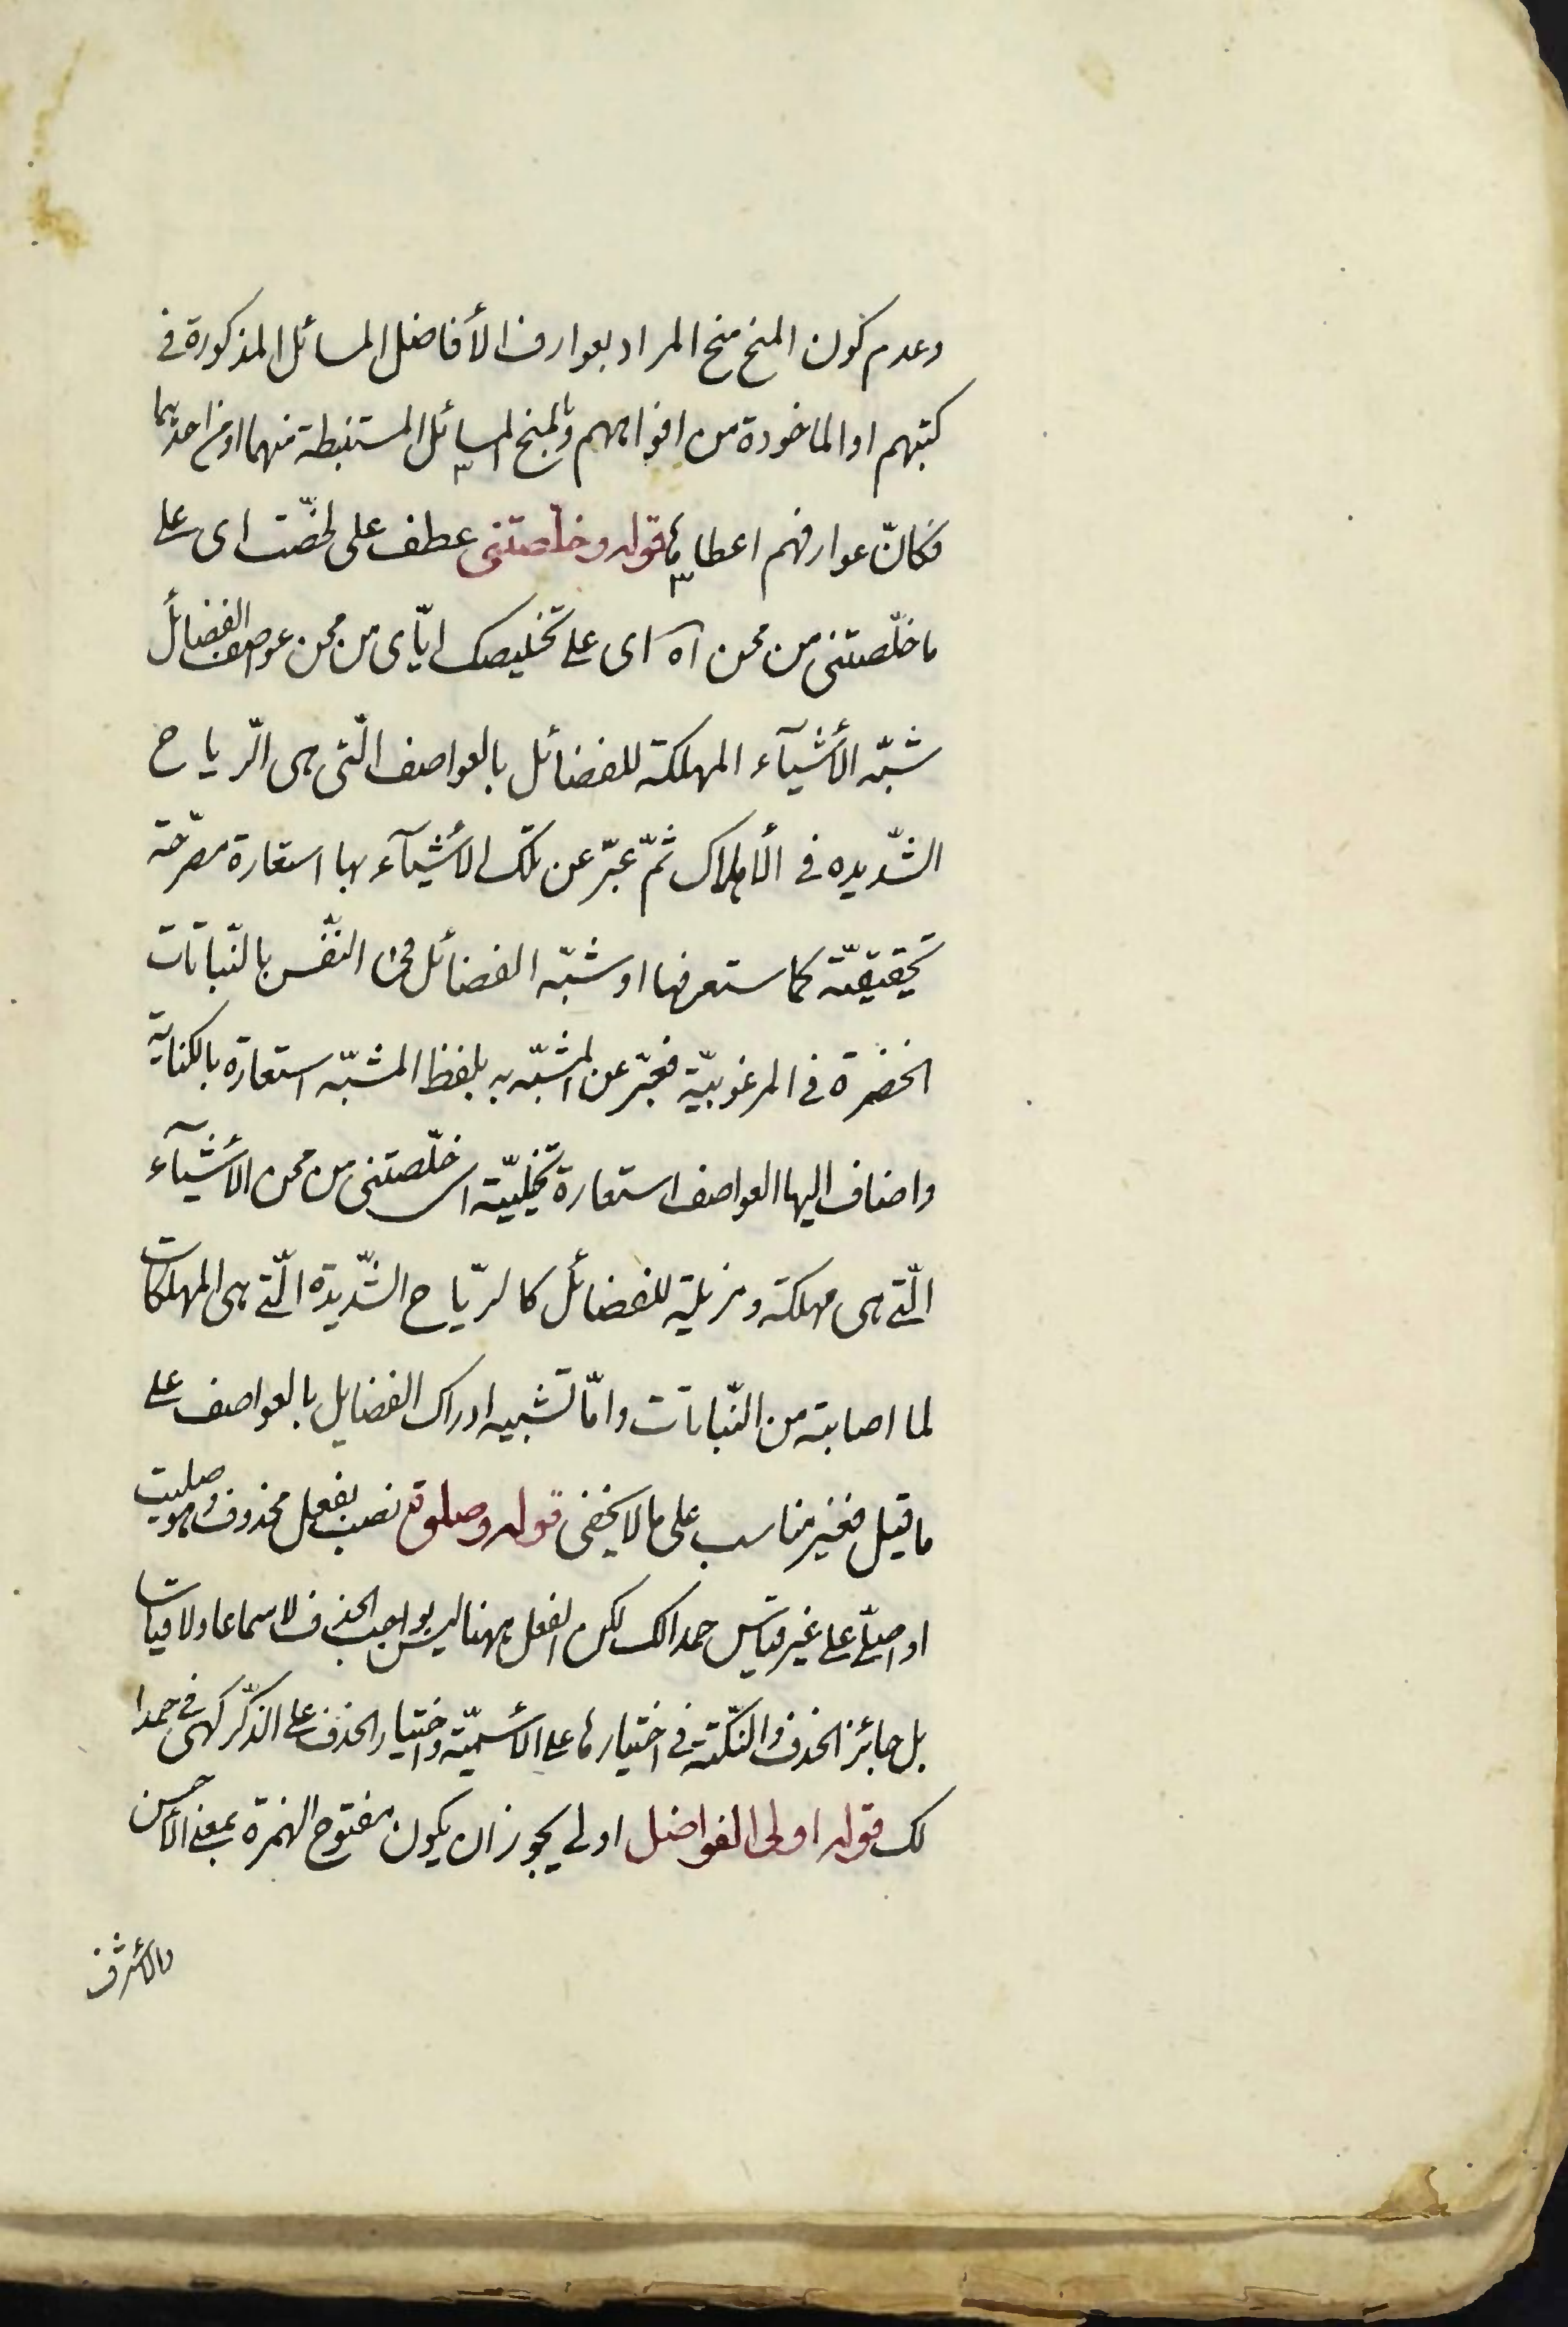 وعدم كون المنح منح المراد بعوارف الأفاضل المسائل المذكورة فى
كتبهم او الماخوذة من افواههم وبالمنح المسائل المستنبطة منهما او من احديهما
فكانّ عوارفهم اعطاها قوله وخلّصتنى عطف على لخصّت اى على
ما خلّصتنى من محن اه اى على تخليصك ايّاى من محن عواصف الفضائل
شبّه الأشيآء المهلكة للفضائل بالعواصف الّتى هى الرّياح
الشّديده فى الأهلاك ثمّ عبّر عن تلك الأشيآء بها استعارة مصرّحة
تحقيقيّة كما ستعرفها او شبّه الفضائل فى النّفس بالنّباتات
الخضرة فى المرغوبيّة فعبّر عن المشبّه به بلفظ المشبّه استعارة بالكناية
واضاف اليها العواصف استعارة تخييليّة اى خلّصتنى من محن الأشيآء
الّتى هى مهلكة ومزيلة للفضائل كالرّياح الشّديدة الّتى هى المهلكات
لما اصابته من النّباتات وامّا تشبيه ادراك الفضايل بالعواصف على
ما قيل فغير مناسب على ما لا يخفى قوله وصلوة نصب بفعل محذوف وهو صليت
او اصلّى على غير قياس حمدا لك لكن الفعل ههنا ليس بواجب الحذف لا سماعا ولا قياسا
بل جائز الحذف والنّكتة فى اختيارها على الأسميّة واختيار الحذف على الذّكر كهى فى حمدا
لك قوله اولى الفواضل اولى يجوز ان يكون مفتوح الهمزة بمعنى الأحسن
والأشرف